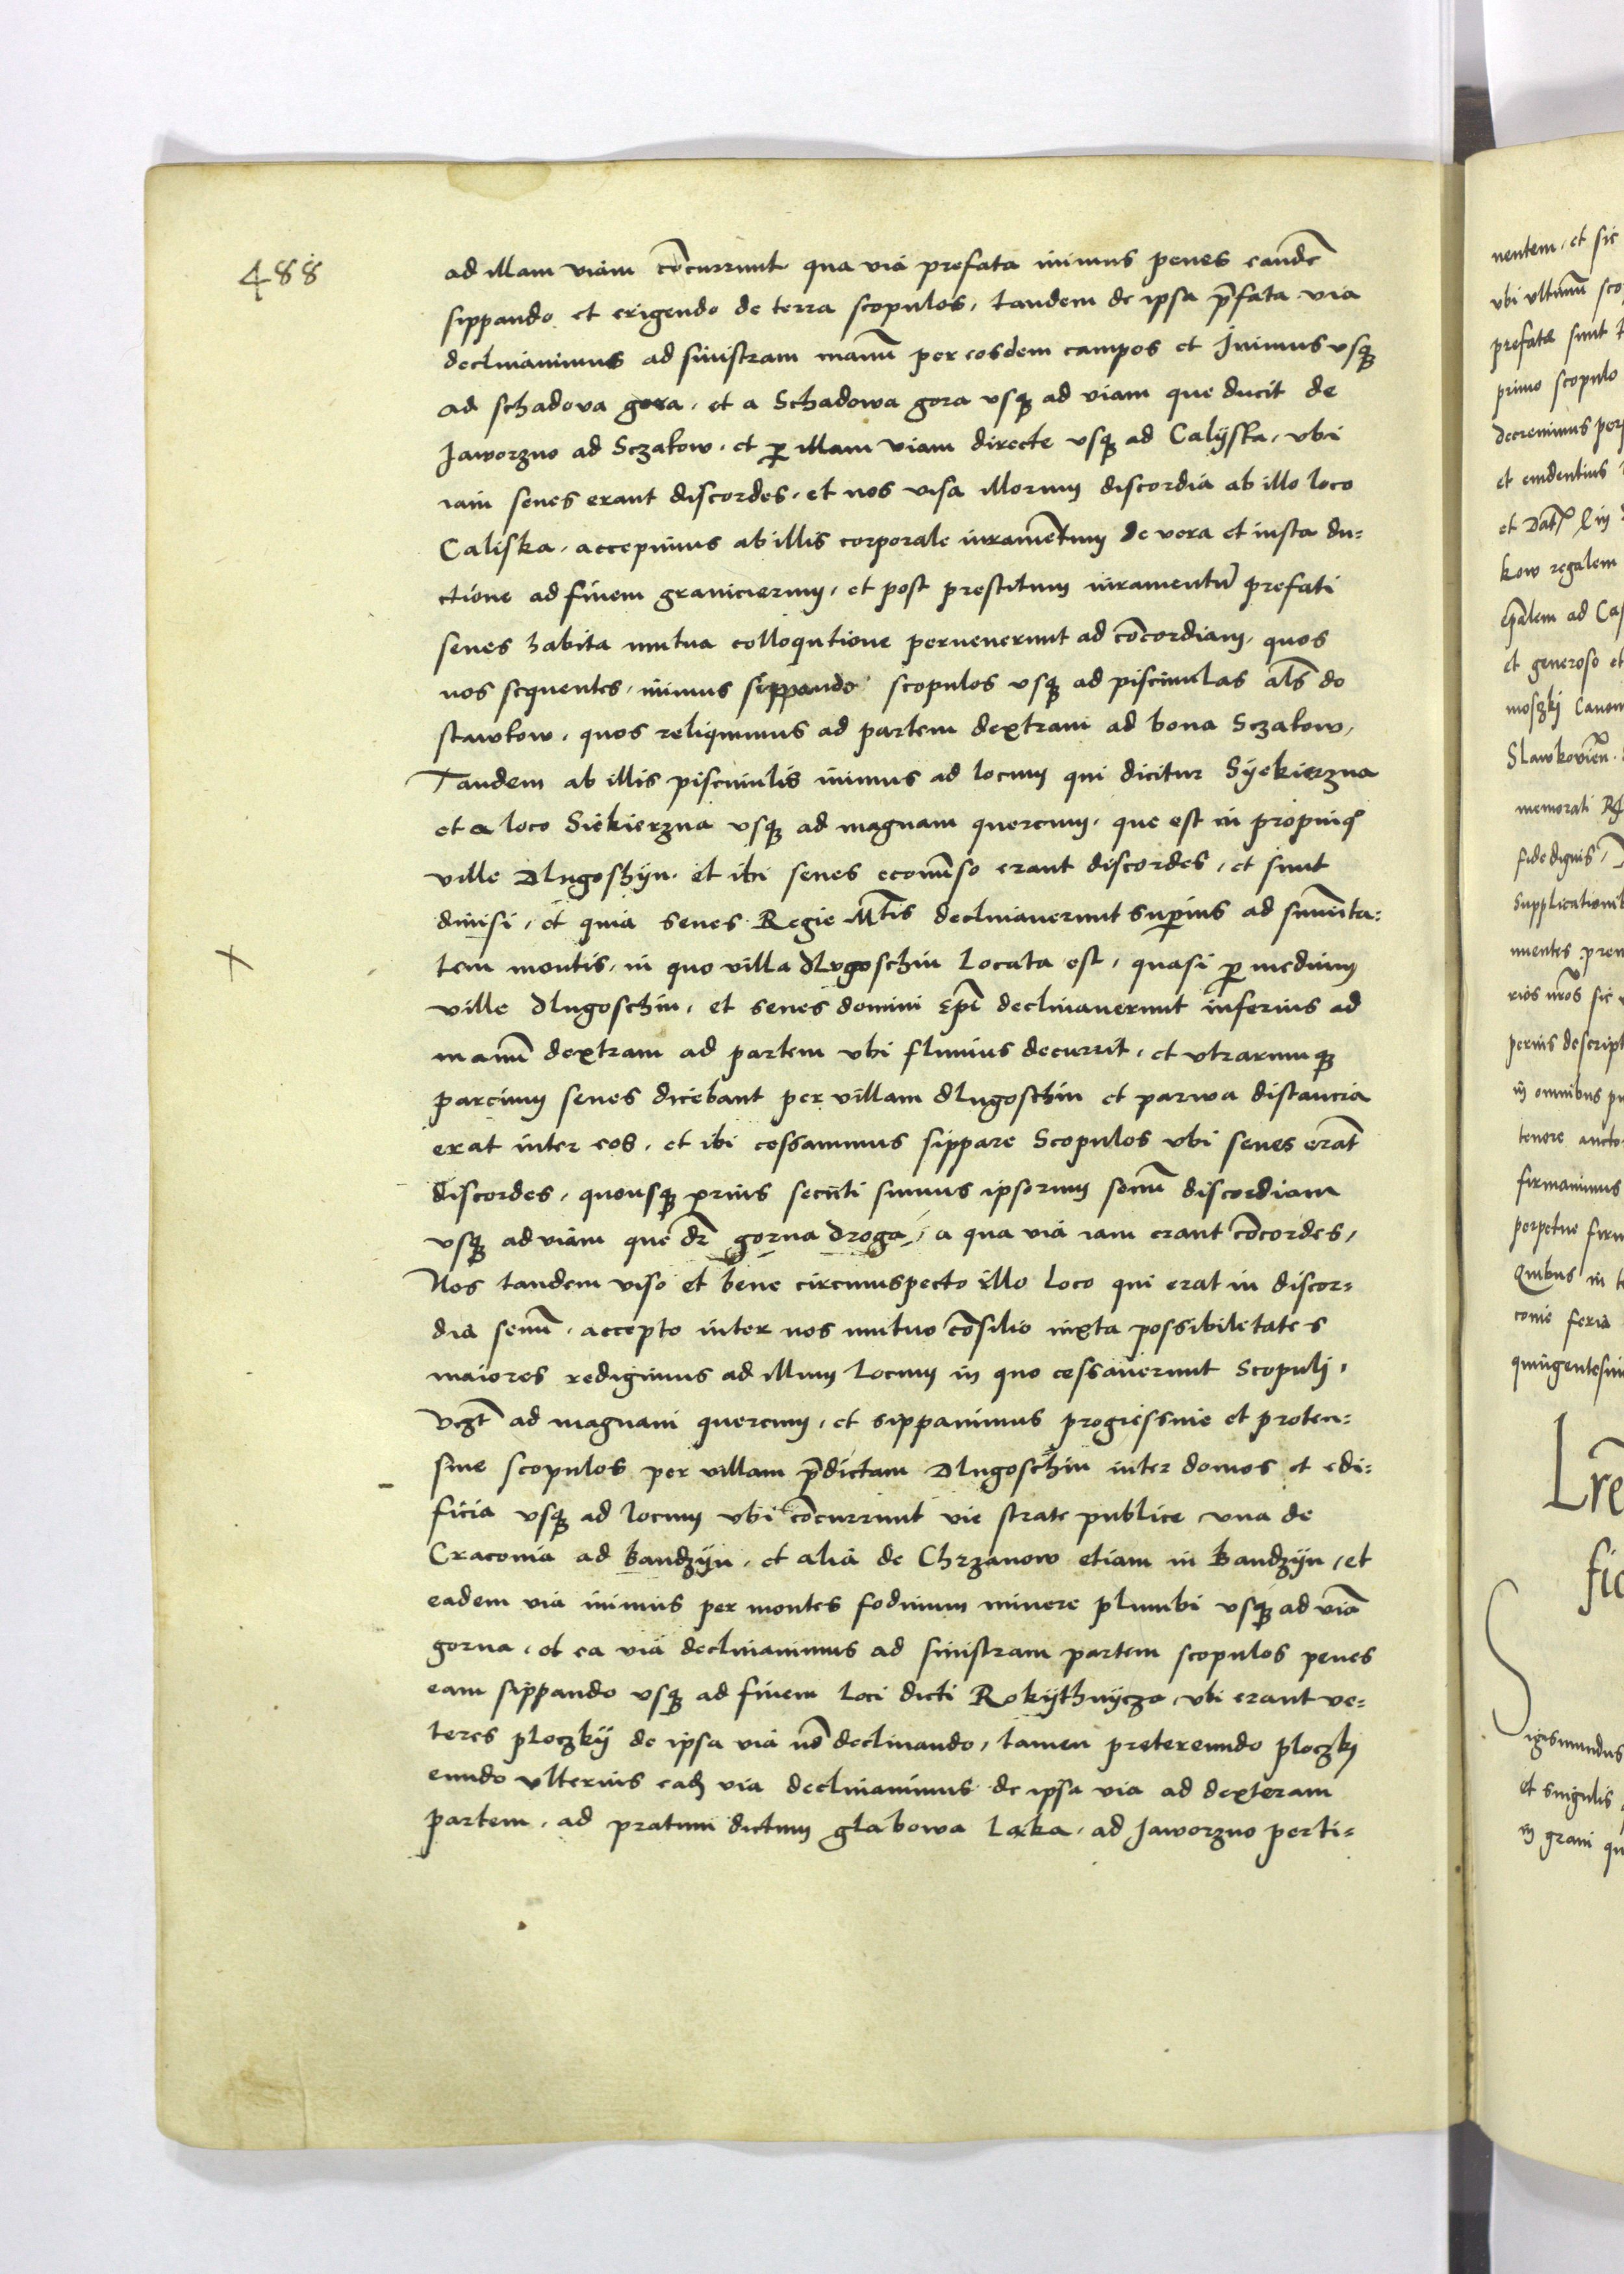 488
ad illam viam co͞ncurrunt qua via prefata iuimus penes eande͞
sippando et erigendo de terra scopulos, tandem de ipsa p͞rfata via
declinauimus ad sinistram manu͞ per eosdem campos et Juimus vsq;
ad schadova gora, et a Schadowa gora vsq; ad viam que ducit de
Jaworzno ad Sczakow, et p̲ illam viam directe vsq; ad Calyska, vbi
iam senes erant discordes, et nos visa illorum discordia ab illo loco
Caliska, accepimus ab illis corporale iurame͞ntum de vera et iusta du=
ctione ad finem granicierum, et post prestitum iuramentu͞ prefati
senes habita mutua colloqutione peruenerunt ad co͞cordiam, quos
nos sequentes, iuimus sippando scopulos vsq; ad piscinulas al͞s do
stawkow, quos reliquimus ad partem dextram ad bona Sczakow,
Tandem ab illis piscinulis iuimus ad locum qui dicitur Syekierzna
et a loco Siekierzna vsq; ad magnam quercum, que est in propinq͞
ville Dlugoshyn, et ibi senes econue͞so erant discordes, et sunt
diuisi, et quia senes Regie M͞tis declinauerunt sup̲ius ad sum͞ita=
tem montis, in quo villa dlvgoschin locata est, quasi p̲ medium
ville dlugoschin, et senes domini Ep͞i declinauerunt inferius ad
manu͞ dextram ad partem vbi fluuius decurrit, et vtrarumq;
parcium senes dicebant per villam dlugoschin et parwa distancia
erat inter eos, et ibi cessauimus sippare Scopulos vbi senes era͞t
discordes, quousq; prius secuti sumus ipsorum senu͞ discordiam
vsq; ad viam que d͞r gorna droga, a qua via iam erant co͞cordes,
Nos tandem viso et bene circumspecto illo loco qui erat in discor=
dia senu͞, accepto inter nos mutuo co͞silio iuxta possibiletates
maiores redigimus ad illum locum in quo cessauerunt Scopuli,
vz͞t ad magnam quercum, et sippauimus progressiue et proten=
siue scopulos per villam p͞rdictam Dlugoschin inter domos et edi=
ficia vsq; ad locum vbi co͞ncurrunt vie strate publice vna de
Craconia ad Bandzyn, et alia de Chrzanow etiam in Bandzyn, et
eadem via iuimus per montes fodinum minere plumbi vsq; ad via͞
gorna, et ea via declinauimus ad sinistram partem scopulos penes
eam sippando vsq; ad finem loci dicti Rokythnycza, vbi erant ve=
teres ploczky de ipsa via no͞ declinando, tamen pretereundo ploczky
eundo vlterius ead; via declinauimus de ipsa via ad dexteram
partem, ad pratum dictum glabowa laka, ad Jaworzno perti=
nentem, et sic
vbi vltimu͞ sco
prefata sunt
primo scopulo
decreuimus per
et euidentius
kow regalem
Ep͞alem ad Ca
et generoso et
moszky Canon
Slawkovie͞n
memorati
fidedignis,
Supplicationib
nuentes pre
rios n͞ros sic
perius descript
in omnibus
tenore aucto
firmauimus
perpetue firm
Quibus in
conie feria
quingentesim
Lr͞e
fic
Sigismundus
et singulis
in grani qu